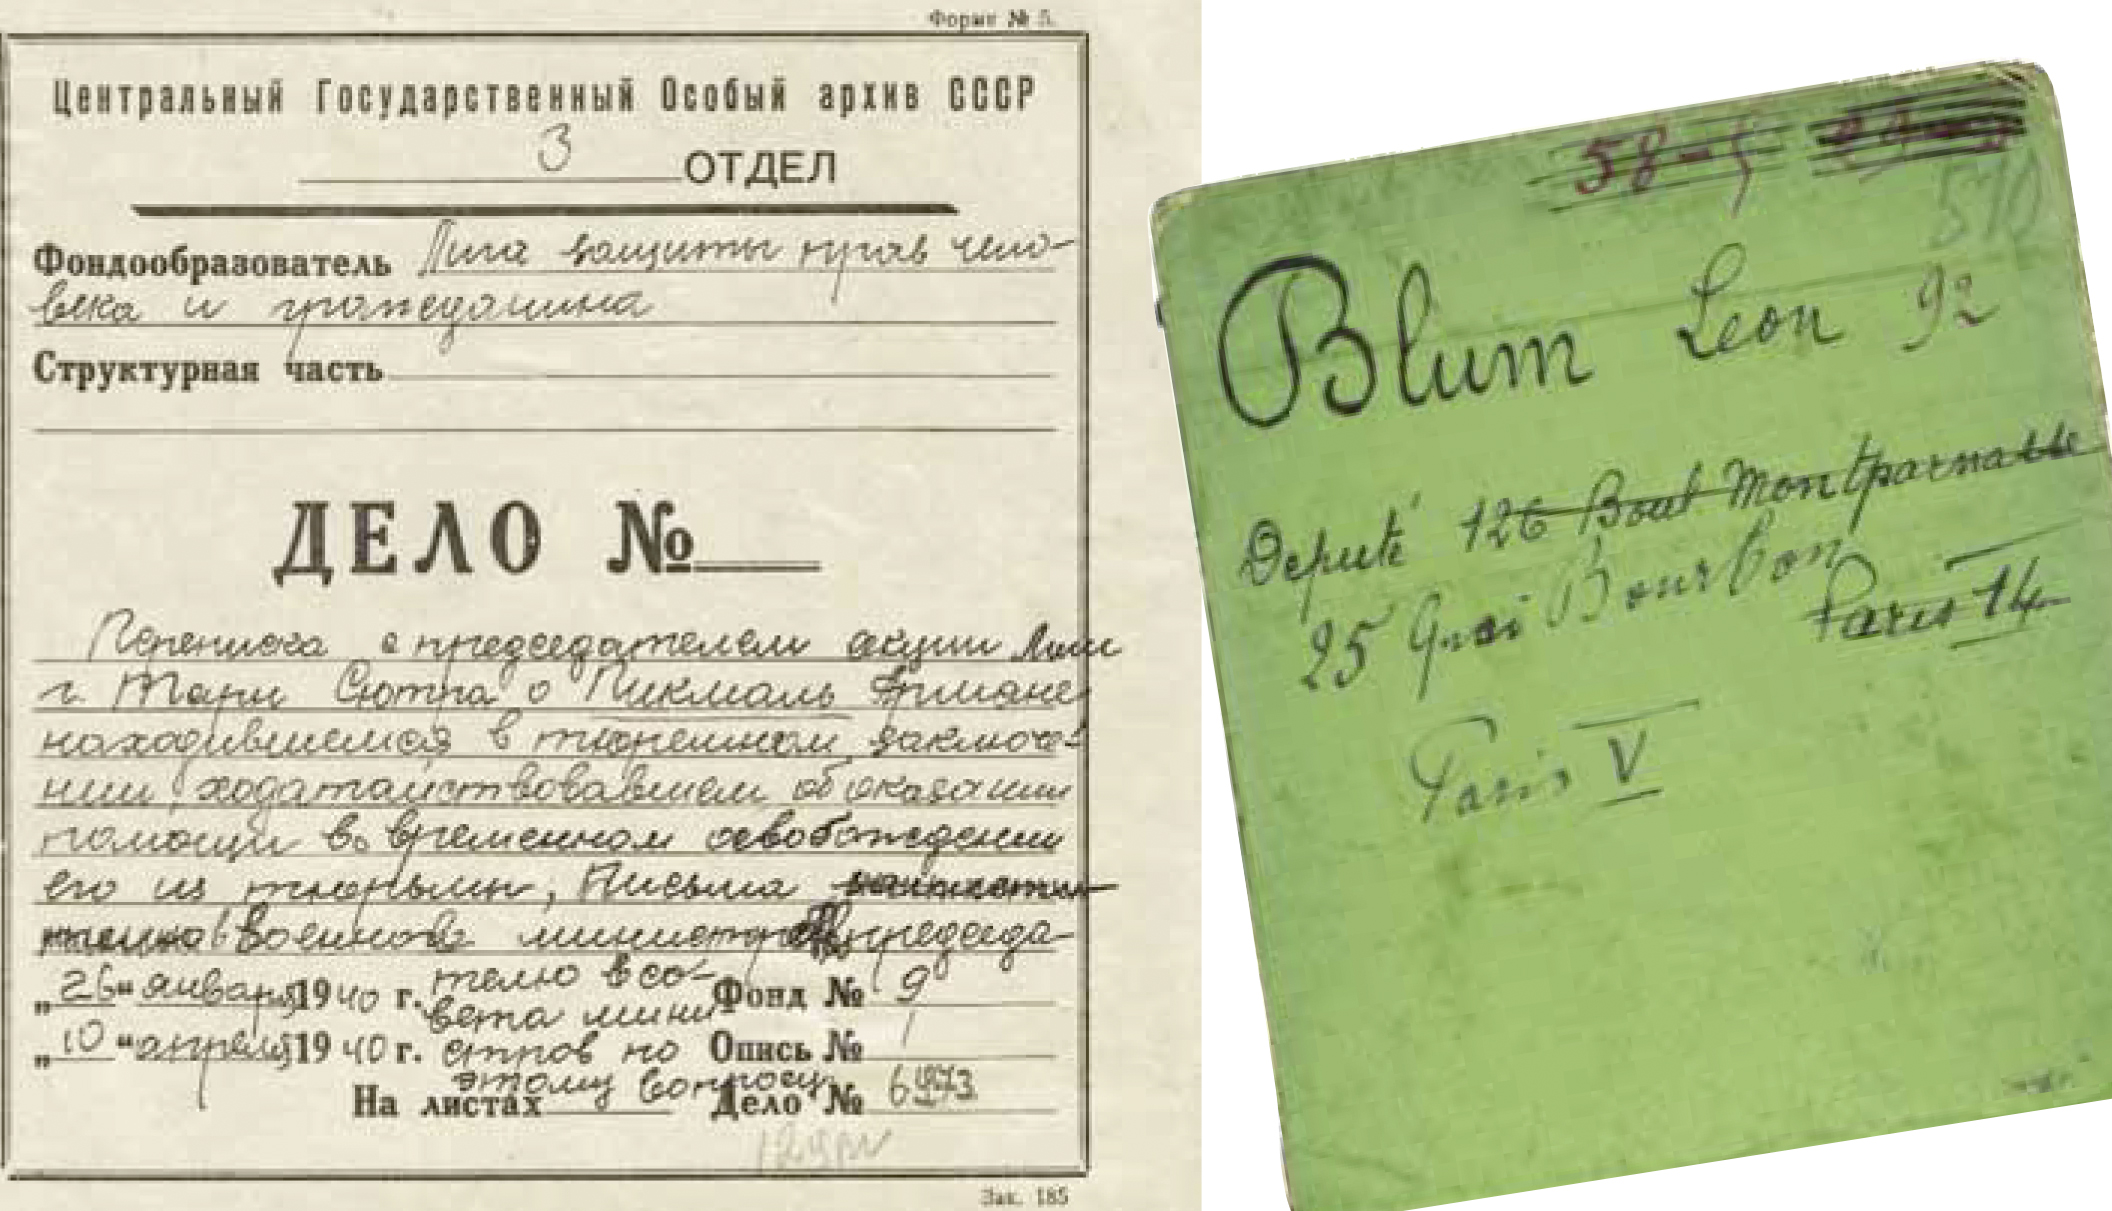 Формт № 5.
Центральный Государственный Особый архив СССР
3 ОТДЕЛ
Фондообразователь Лига защиты прав чело-
века и гражданина
Структурная часть
ДЕЛО №
Переписка с председателем секции Лиги
г. Мари о Пикмаль
находившемся в тюремном заключе-
нии, ходатайствовавшем об оказании
помощи в временном освобождении
его из тюрьмы; Письма
военного председа-
телю в со-
вета мини
стров по
этому вопросу
„26“ января 1940 г. Фонд № 9
„10“ апреля 1940 г. Опись № 1
На листах Дело №
Зак. 185
58-5
510
Blum Leon 92
Deputé 126 Boul Montparnasse
25 Quai Bourbon
Paris 14
Paris V